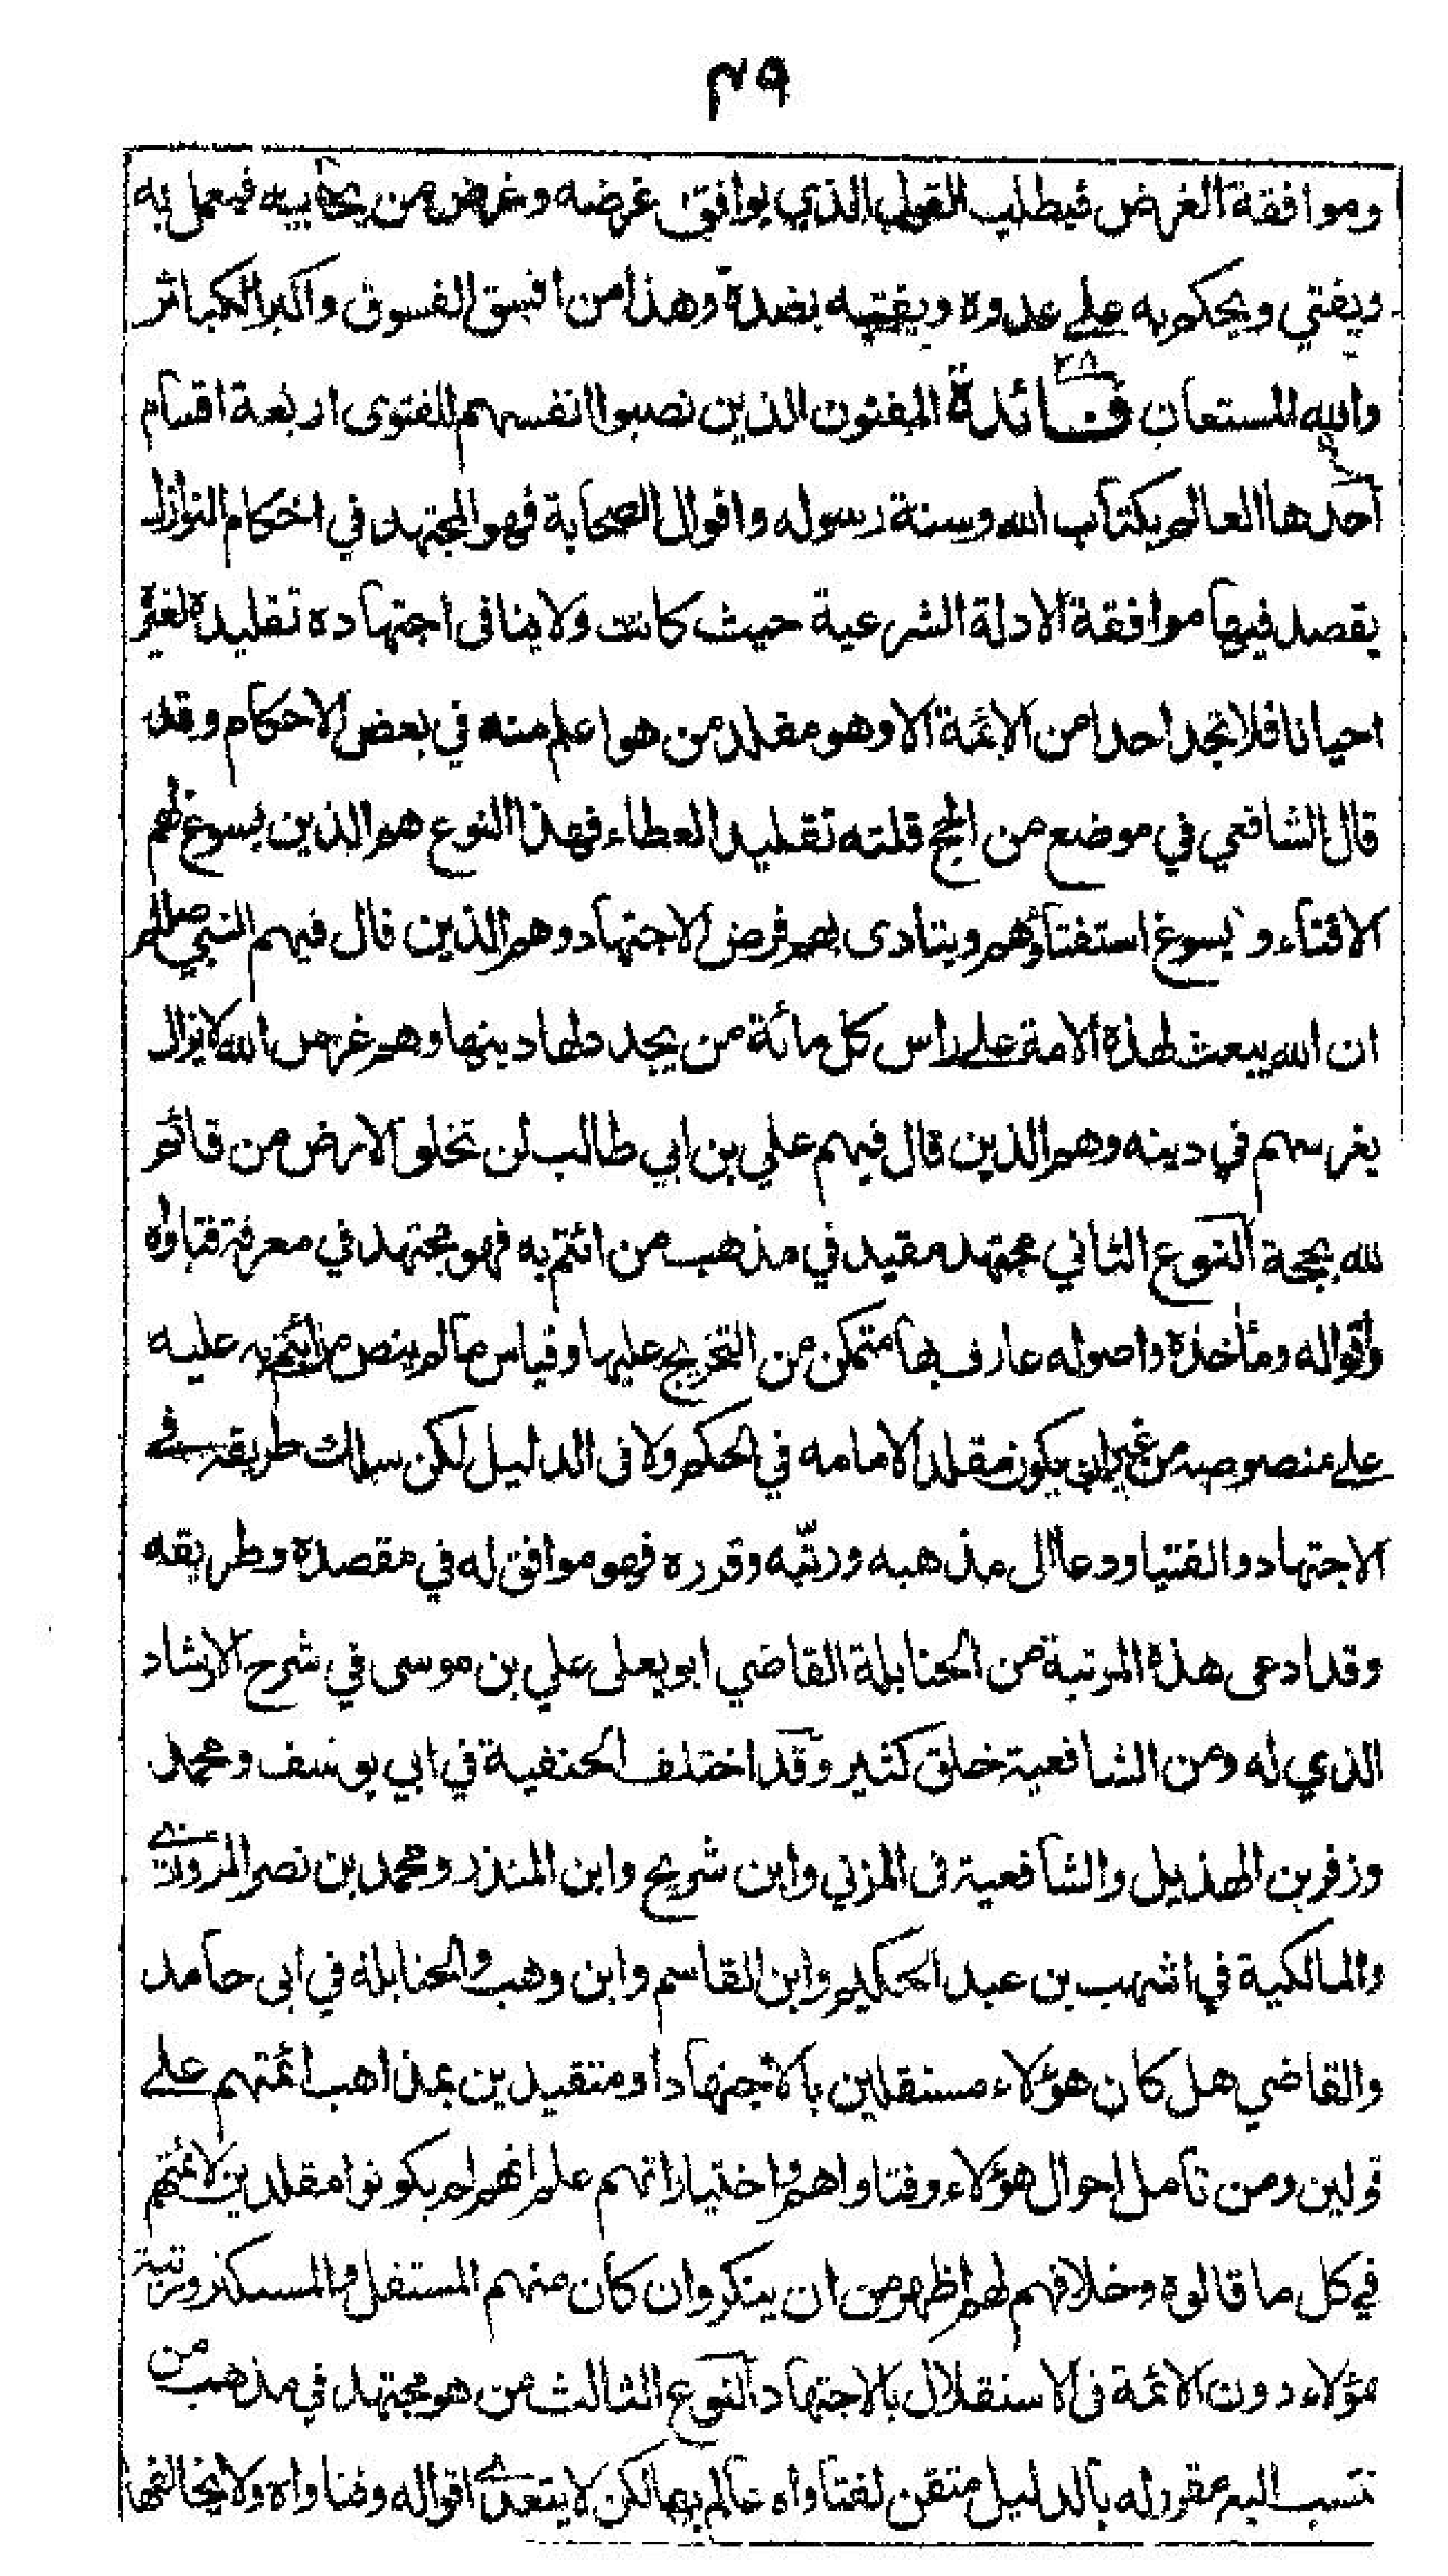 ٤٩
وموافقة الغرض فيطلب القول الذي يوافق غرضه وغرض من يحابيه فيعمل به
ويفتي ويحكم به على عدوه ويفتيه بضدة وهذا من افسق الفسوق واكبر الكبائر
والله المستعان فائدة المفتون الذين نصبوا انفسهم للفتوى اربعة اقسام
٢٨
احدها العالم بكتاب الله وسنة رسوله واقوال الصحابة فهو المجتهد في احكام النوازل
يقصد فيها موافقة الادلة الشرعية حيث كانت ولا ينافى اجتهاده تقليدة لغيره
احيانا فلا تجد احدا من الائمة الا وهو مقلد من هو اعلم منه في بعض الاحكام وقد
قال الشافعي في موضع من الحج قلته تقليدا لعطاء فهذا النوع هم الذين يسوغ لهم
الافتاء ويسوغ استفتاؤهم ويتادى بهم فرض الاجتهاد وهم الذين قال فيهم النبي صلعم
ان الله يبعث لهذة الامة على راس كل مائة من يجدد لها دينها وهم غرس الله لا يزال
يغرسهم في دينه وهم الذين قال فيهم علي بن ابي طالب لن تخلو الارض من قائم
لله بحجة النوع الثاني مجتهد مقيد في مذهب من ائتم به فهو مجتهد في معرفة فتاواه
واقواله ومأخذة واصوله عارف بها متمكن من التخريج عليها وقياس ما لم ينص من ائتم به عليه
على منصوصه من غير ان يكون مقلدا لامامه في الحكم ولا فى الدليل لكن سلك طريقه في
الاجتهاد والفتيا ودعا الى مذهبه ورتّبه وقرره فهو موافق له في مقصدة وطريقه
وقد ادعى هذة المرتبة من الحنابلة القاضي ابو يعلى علي بن موسى في شرح الارشاد
الذي له ومن الشافعية خلق كثير وقد اختلف الحنفية في ابي يوسف ومحمد
وزفر بن الهذيل والشافعية فى المزني وابن شريح وابن المنذر ومحمد بن نصر المروزي
والمالكية في اشهب بن عبد الحكيم وابن القاسم وابن وهب والحنابلة في ابى حامد
والقاضي هل كان هؤلاء مستقلين بالاجتهاد او متقيدين بمذاهب ائمتهم على
قولين ومن تأمل احوال هؤلاء وفتاواهم واختياراتهم علم انهم لم يكونوا مقلدين لائمتهم
في كل ما قالوه وخلافهم لهم اظهر من ان ينكر وان كان منهم المستقل والمستكثر ورتبة
هؤلاء دون الائمة فى الاستقلال بالاجتهاد النوع الثالث من هو مجتهد في مذهب من
نتسب اليه مقرر له بالدليل متقن لفتاواه عالم بها لكن لا يتعدى اقواله وفتاواه ولا يخالفها